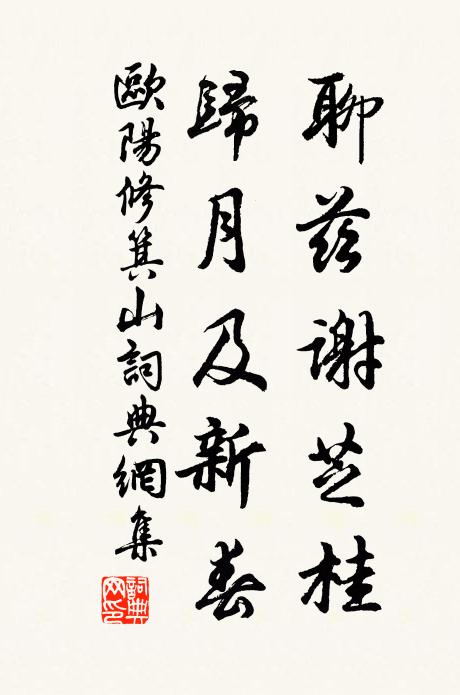 聊茲謝芝桂
歸月及新春
歐陽修箕山詞典網集
詞典網印